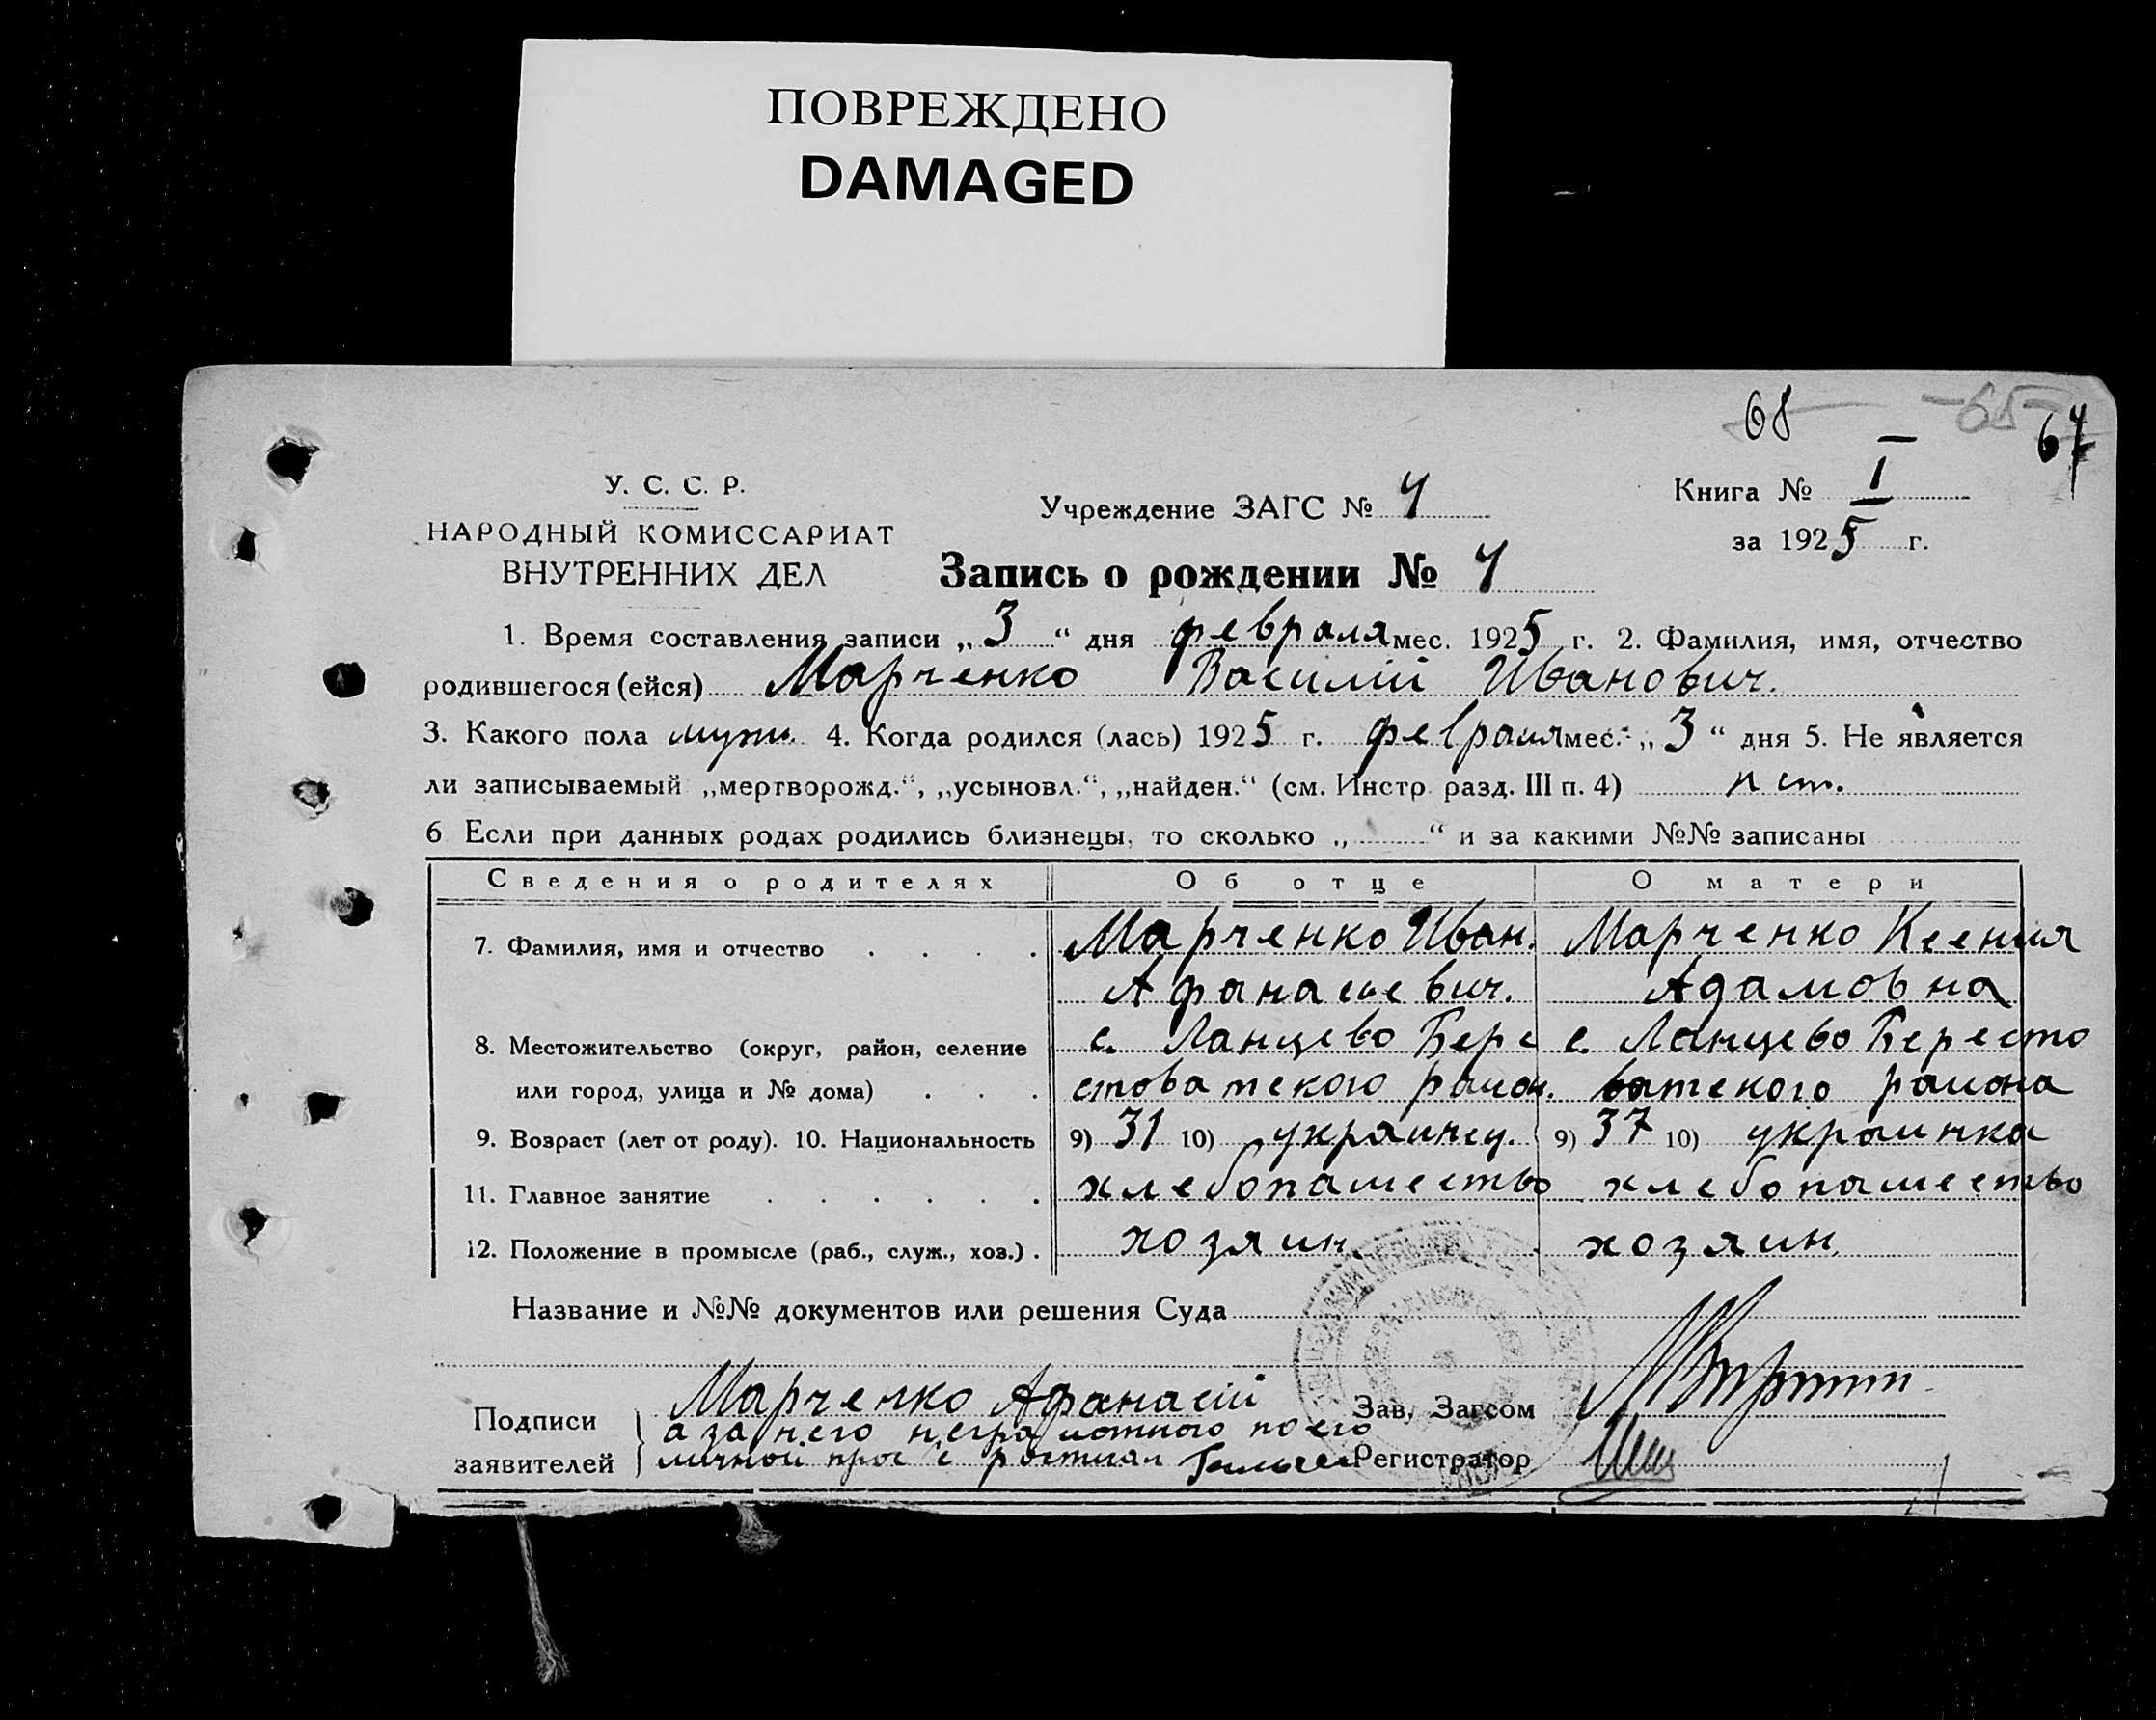 ПОВРЕЖДЕНО
DAMAGED
68 65 67
У. С. С. Р.
НАРОДНЫЙ КОМИССАРИАТ
ВНУТРЕННИХ ДЕЛ
Учреждение ЗАГС № 4
Запись о рождении № 4
Книга № I
за 1925 г.
1. Время составления записи „3“ дня февраля мес. 1925 г. 2. Фамилия, имя, отчество
родившегося (ейся) Марченко Василий Иванович.
3. Какого пола мужс. 4. Когда родился (лась) 1925 г. февраля мес. „3“ дня 5. Не является
ли записываемый „мертворожд.“, „усыновл.“, „найден.“ (см. Инстр. разд. III п. 4) нет.
6 Если при данных родах родились близнецы, то сколько „ “ и за какими №№ записаны
Сведения о родителях Об отце О матери
7. Фамилия, имя и отчество Марченко Иван. Марченко Ксения
Афанасиевич. Адамовна
8. Местожительство (округ, район, селение с. Ланцево Бере с. Ланцево Бересто
или город, улица и № дома) стоватского район. ватского района
9. Возраст (лет от роду). 10. Национальность 9) 31 10) украинец. 9) 37 10) украинка
11. Главное занятие хлебопашество хлебопашество
12. Положение в промысле (раб., служ., хоз.) хозяин. хозяин.
Название и №№ документов или решения Суда
Подписи Марченко Афанасий Зав. Загсом
а за него неграмотного по его
заявителей личной Регистратор